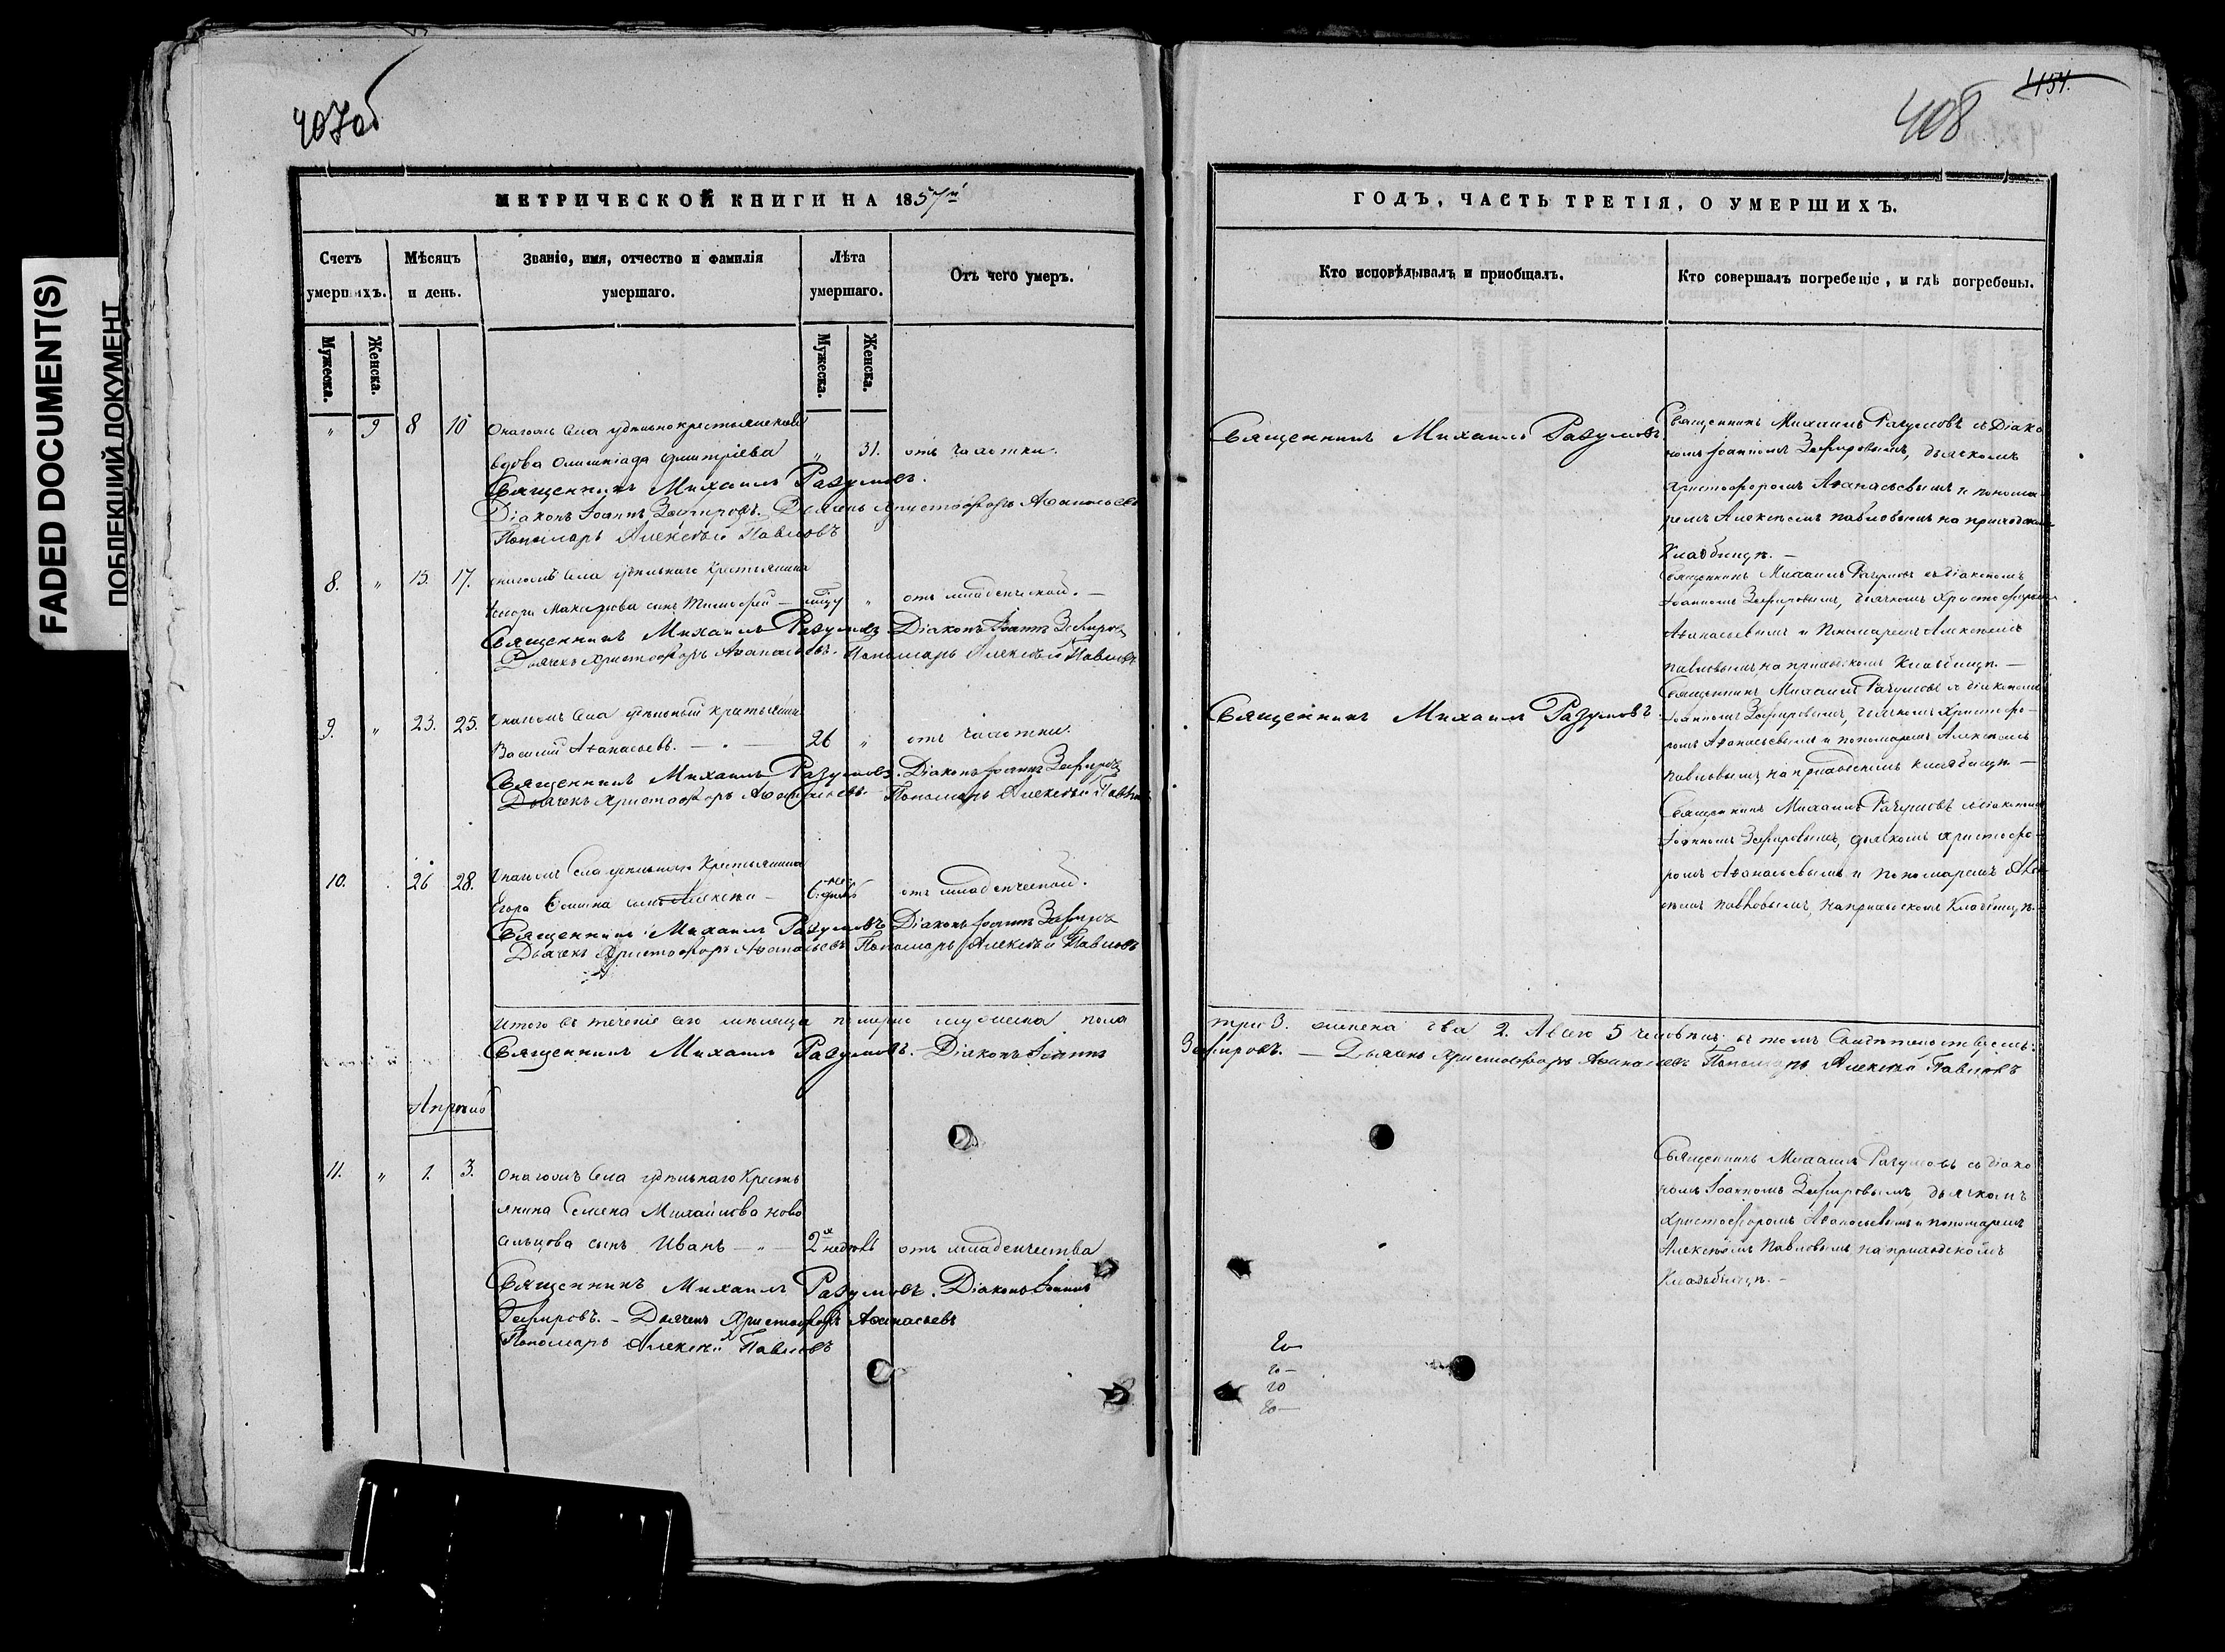 407об
МЕТРИЧЕСКОЙ КНИГИ НА 1857й
Счетъ умершихъ.
Мѣсяцъ и день.
Званіе, имя, отчество и фамилія умершаго.
Лѣта умершаго.
Отъ чего умеръ.
Мужеска.
Женска.
Мужеска.
Женска.
" 9 8 10 Онагожъ села удѣльно крестьянская
вдова Олимпіада Дмитріева " 31. отъ чахотки.
Священникъ Михаилъ Разумовъ.
Діаконъ Іоаннъ Зефировъ. Дьячекъ Христофоръ Аѳанасьевъ
Пономарь Алексѣй Павловъ
8. " 15. 17. онагожъ села удѣльнаго крестьянина
сынъ Тимофей — " отъ младенческой. —
Священникъ Михаилъ Разумовъ Діаконъ Іоаннъ Зефировъ
Дьячекъ Христофоръ Аѳанасьевъ. Пономарь Алексѣй Павловъ
9. " 23. 25. Онагожъ села удѣльный крестьянинъ
Василій Аѳанасьевъ. — " — 26 " отъ чахотки.
Священникъ Михаилъ Разумовъ. Діаконъ Іоаннъ Зефировъ
Дьячекъ Христофоръ Аѳанасьевъ. Пономарь Алексѣй Павловъ
10. 26 28. Онагожъ села удѣльнаго крестьянина
Егора сынъ Алексѣй — отъ младенческой.
Священникъ Михаилъ Разумовъ Діаконъ Іоаннъ Зефировъ
Дьячекъ Христофоръ Аѳанасьевъ Пономарь Алексѣй Павловъ
Итого въ теченіе сего мѣсяца померло мужеска пола
Священникъ Михаилъ Разумовъ. — Діаконъ Іоаннъ
Апрѣль
11. " 1. 3. Онагожъ села удѣльнаго кресть
янина Семена Михайлова Ново
сельцова сынъ Иванъ — " — 2хъ недѣль отъ младенчества
Священникъ Михаилъ Разумовъ. Діаконъ Іоаннъ
Зефировъ. — Дьячекъ Христофоръ Аѳанасьевъ
Пономарь Алексѣй Павловъ
454.
408
ГОДЪ, ЧАСТЬ ТРЕТІЯ, О УМЕРШИХЪ.
Кто исповѣдывалъ и приобщалъ.
Кто совершалъ погребеніе, и гдѣ погребены.
Священникъ Михаилъ Разумовъ
Священникъ Михаилъ Разумовъ съ Діако
номъ Іоанномъ Зефировымъ, дьячкомъ
Христофоромъ Аѳанасьевымъ и понома
ремъ Алексѣемъ Павловымъ на приходскомъ
Кладбищѣ. —
Священникъ Михаилъ Разумовъ съ діакономъ
Іоанномъ Зефировымъ, дьячкомъ Христофоромъ
Аѳанасьевымъ и Пономаремъ Алексѣемъ
Павловымъ, на приходскомъ Кладбищѣ. —
Священникъ Михаилъ Разумовъ
Священникъ Михаилъ Разумовъ съ діакономъ
Іоанномъ Зефировымъ, дьячкомъ Христофо-
ромъ Аѳанасьевымъ и пономаремъ Алексѣемъ
Павловымъ, на приходскомъ кладбищѣ. —
Священникъ Михаилъ Разумовъ съ діакономъ
Іоанномъ Зефировымъ, дьячкомъ Христофо-
ромъ Аѳанасьевымъ и пономаремъ Алек
сѣемъ Павловымъ, на приходскомъ Кладбищѣ.
три 3. женска два 2. А всего 5 человѣкъ, въ томъ Свидѣтельствуемъ:
Зефировъ. — Дьячекъ Христофоръ Аѳанасьевъ Пономарь Алексѣй Павловъ
Священникъ Михаилъ Разумовъ съ діако
номъ Іоанномъ Зефировымъ, дьячкомъ
Христофоромъ Аѳанасьевымъ и пономаремъ
Алексѣемъ Павловымъ, на приходскомъ
Кладбищѣ. —
FADED DOCUMENT(S)
ПОБЛЕКШИЙ ДОКУМЕНТ